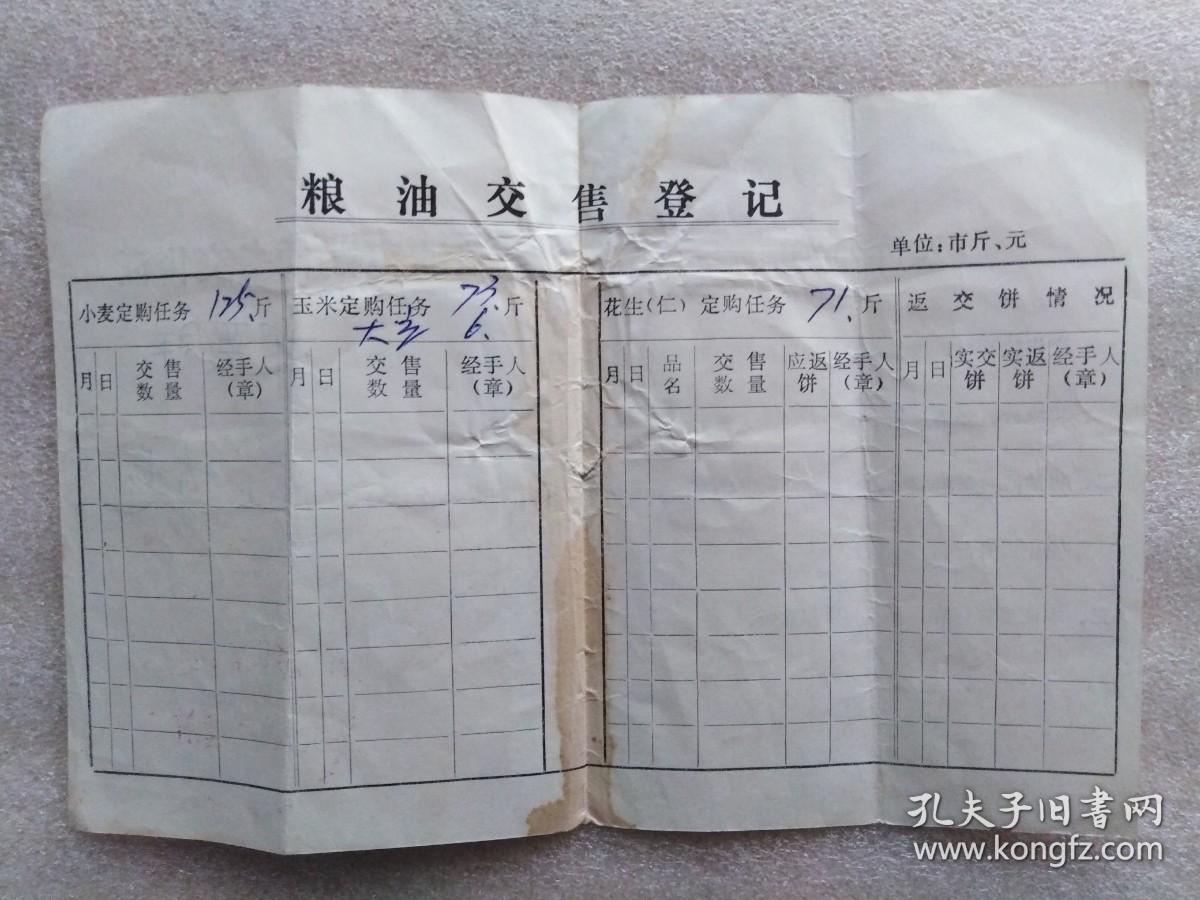 粮油交售登记
单位：市斤、元
小麦定购任务 125、斤
玉米定购任务 73、斤
大豆 6、
花生(仁) 定购任务 71、斤
返交饼情况
月 日 交售数量 经手人(章)
月 日 交售数量 经手人(章)
月 日 品名 交售数量 应返饼 经手人(章)
月 日 实交饼 实返饼 经手人(章)
孔夫子旧書网
www.kongfz.com